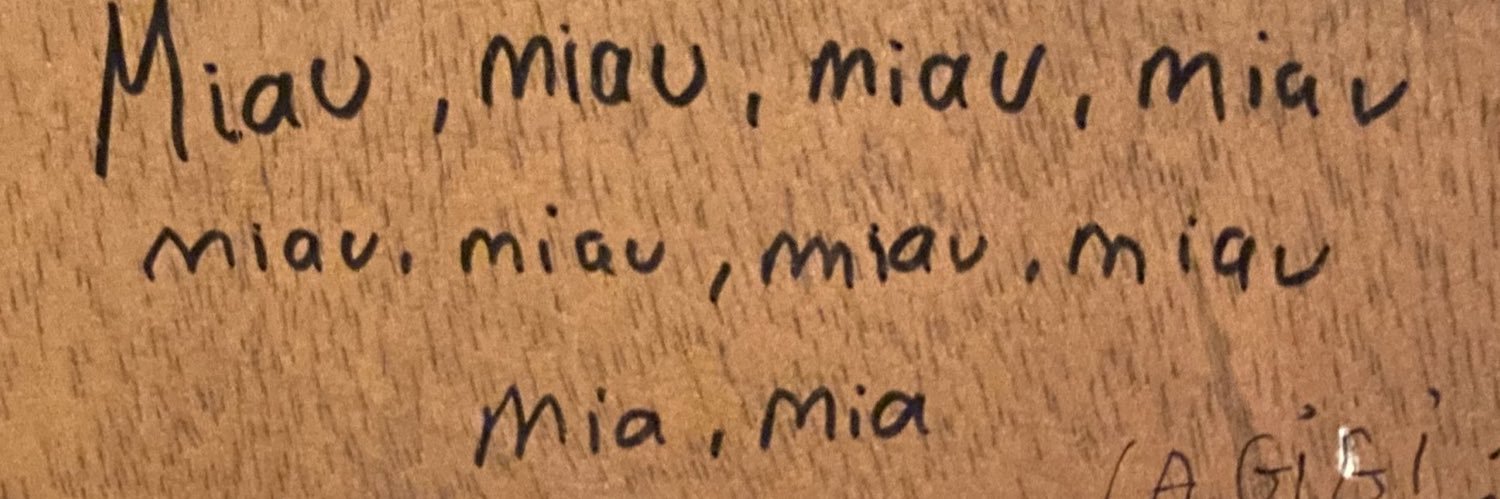 Miau, miau, miau, miau
miau, miau, miau, miau
Mia, mia
(A GiGi